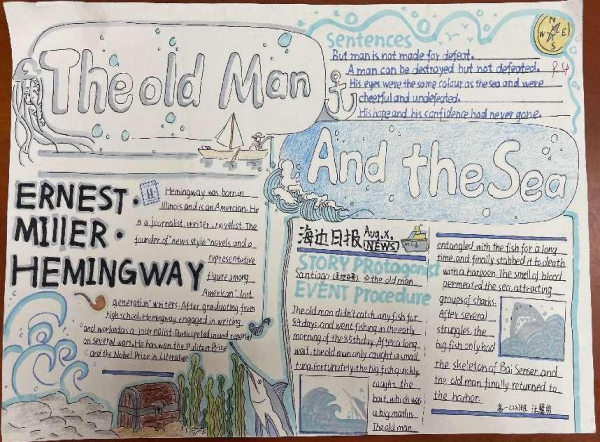 The old Man
And the Sea
Sentences
But man is not made for defeat.
A man can be detroyed but not defeated.
His eyes were the same colour as the sea and were
cheerful and undefeated.
His hope and his confidence had never gone.
N
W
E
S
ERNEST·
MILLER·
HEMINGWAY
Hemingway was born in
Illinois and is an Amercian. He
is a journalist, writer, novelist. The
founder of "news style" novels and a
representative
figure among
American" lost
generation" writers. After graduating from
high school, Hemingway engaged in writing
and worked as a journalist. Participated in and reported
on several wars. He has won the Pulitzer Prize
and the Nobel Prize in Literature
海边日报
Aug.X.
NEWS
STORY Protagonist
Santiago
the old man
EVENT Procedure
The old man didn't catch any fish for
84 days and went fishing in the early
morning of the 85th day. After a long
wait, the old man only caught a small
tuna. Fortunately, the big fish quickly
caught the
bait, which was
a big marlin.
The old man
entangled with the fish for a long
time, and finally stabbed it to death
with a harpoon. The smell of blood
permeated the sea, attracting
groups of sharks.
After several
struggles, the
big fish only had
the skeleton of Bai Sensen, and
the old man finally returned to
the harbor.
高一
班